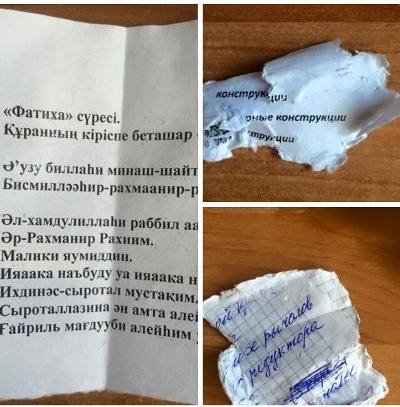 «Фатиха» сүресі.
Құранның кіріспе беташар
Ә’узу биллаһи минаш-шайт
Бисмилләәһир-рахмаанир-р
Әл-хамдулиллаһи раббил аа
Әр-Рахманир Рахиим.
Малики яумиддин.
Ияаака наъбуду уа ияаака н
Ихдинәс-сыротал мустақим.
Сыроталлазина ән амта алей
Ғайриль мағдууби алейһим
конструкции
ные конструкции
нструкции
их рычагов
редуктора